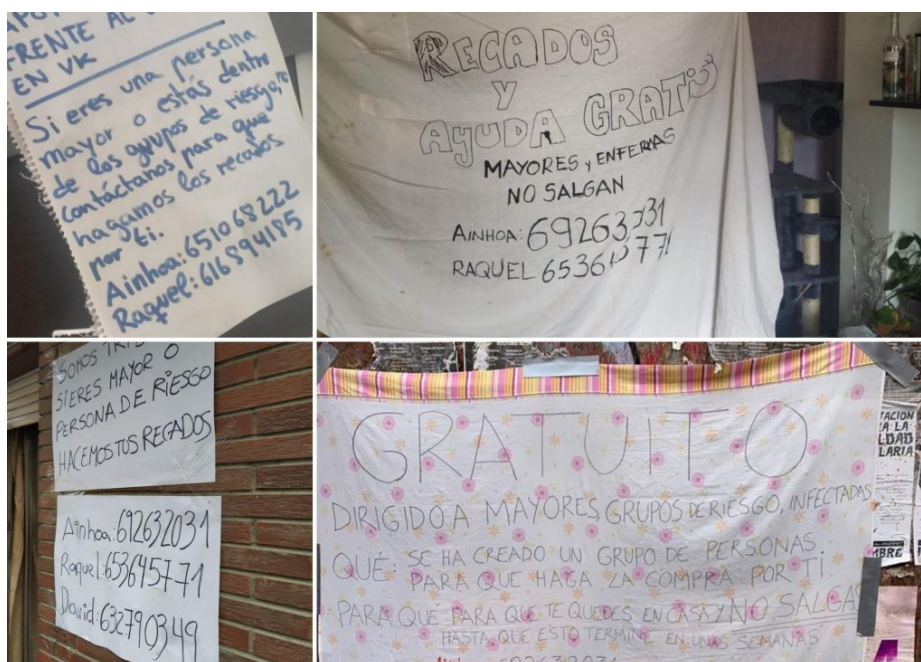 FRENTE AL
EN VK
Si eres una persona
mayor o estás dentro
de los grupos de riesgo,
contáctanos para que
hagamos los recados
por ti.
Ainhoa: 651068222
Raquel: 616894185
RECADOS
Y
AYUDA GRATIS
MAYORES y ENFERMAS
NO SALGAN
AINHOA:
RAQUEL
SOMOS
SI ERES MAYOR O
PERSONA DE RIESGO
HACEMOS TUS RECADOS
Ainhoa: 692632031
Raquel: 653645771
David: 632790349
GRATUITO
DIRIGIDO A MAYORES, GRUPOS DE RIESGO, INFECTADAS
QUÉ: SE HA CREADO UN GRUPO DE PERSONAS
PARA QUE HAGA LA COMPRA POR TI
PARA QUÉ PARA QUE TE QUEDES EN CASA Y NO SALGAS
HASTA QUE ESTO TERMINE EN UNAS SEMANAS